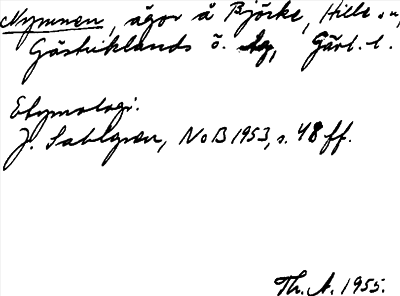 Nymnen, ägor å Björke, Hille sn,
Gästriklands ö. tg, Gävl. l.
Etymologi.
J. Sahlgren, NoB 1953, s. 48 ff.
Th. A. 1955.